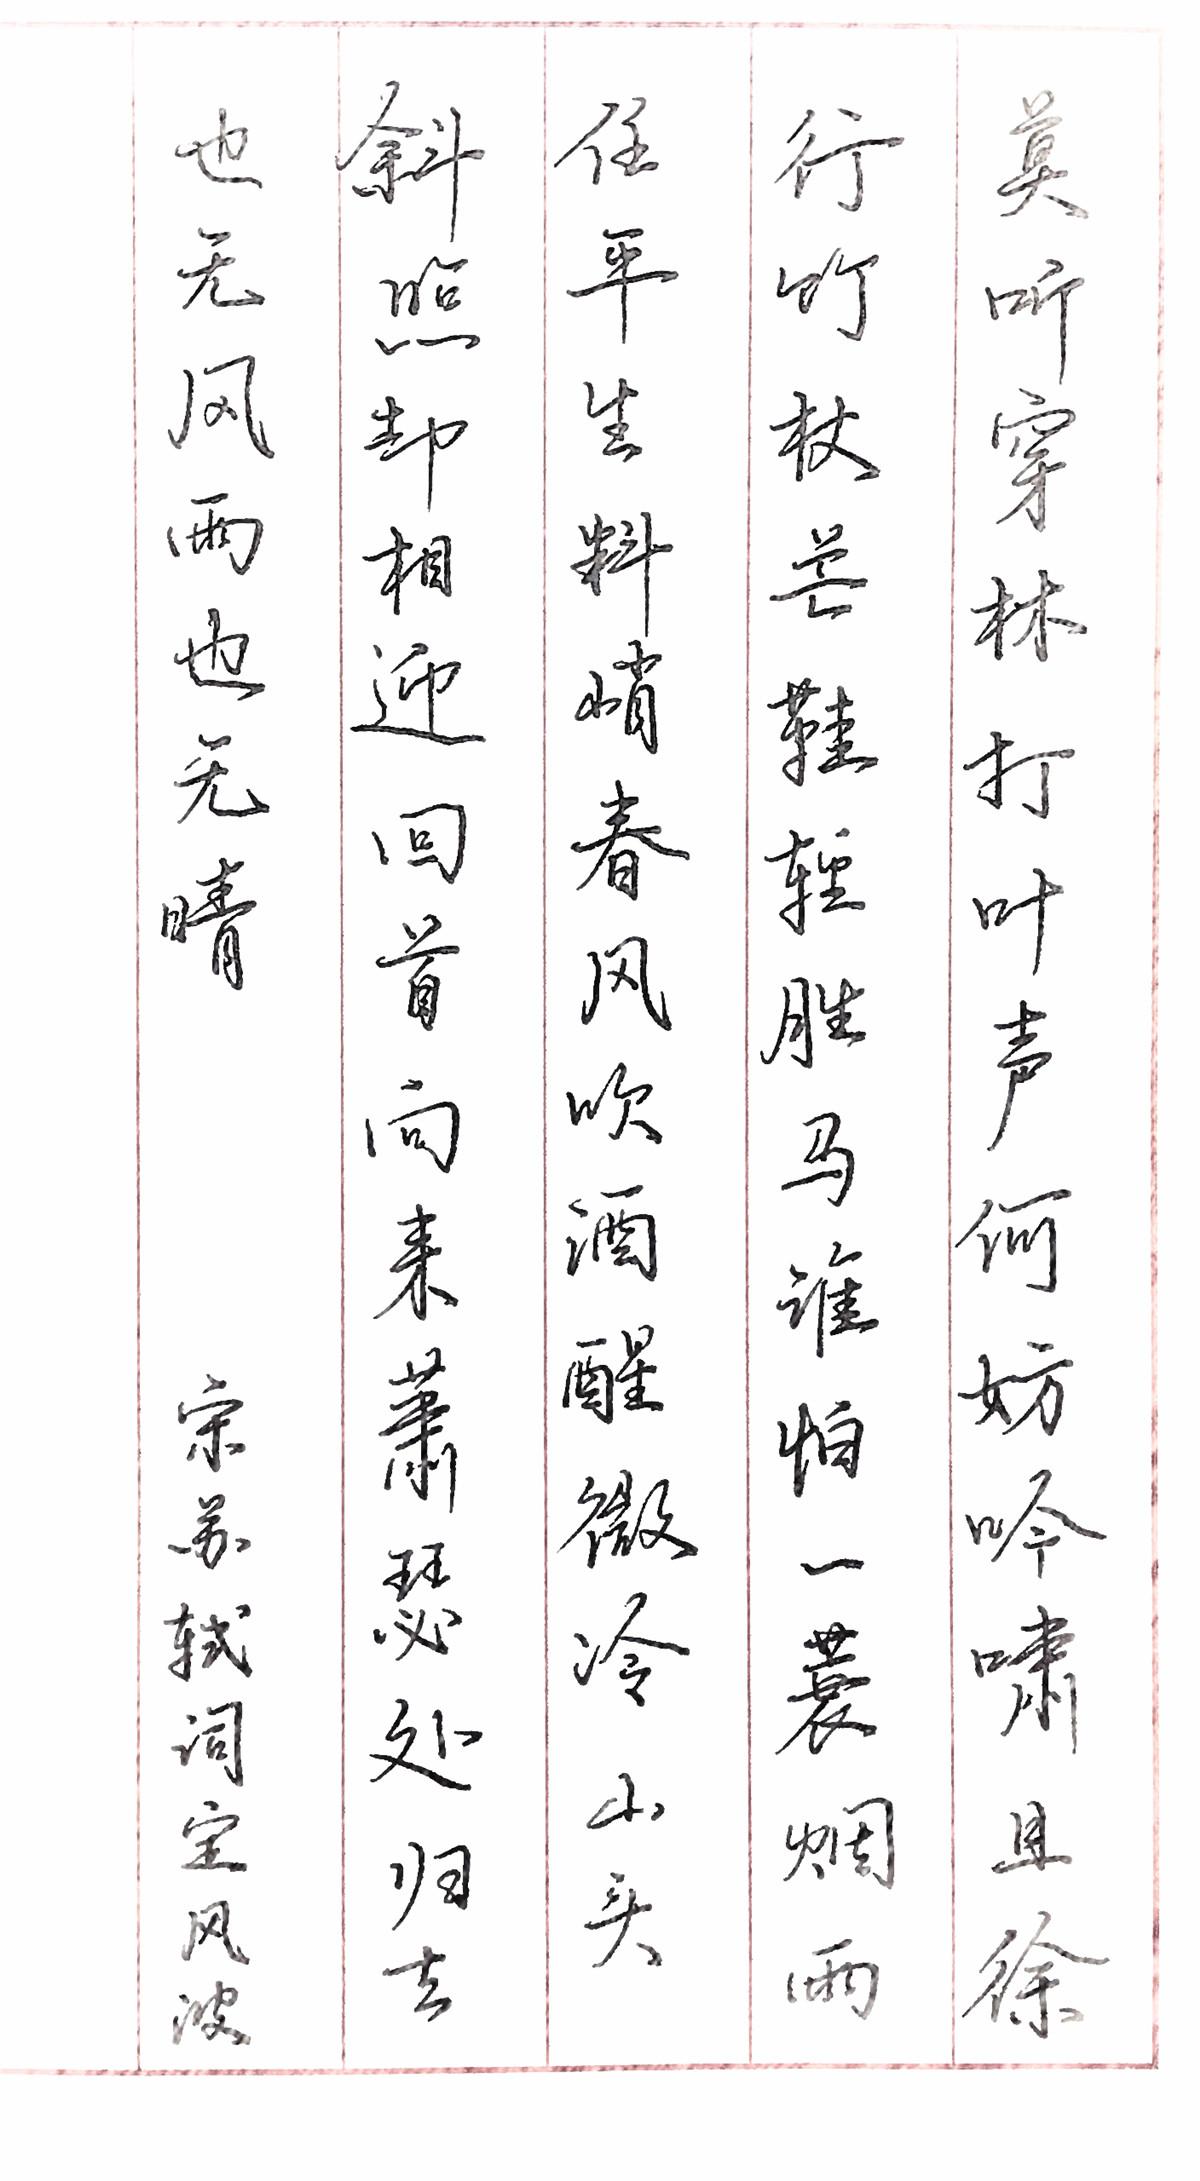 莫听穿林打叶声何妨吟啸且徐
行竹杖芒鞋轻胜马谁怕一蓑烟雨
任平生料峭春风吹酒醒微冷山头
斜照却相迎回首向来萧瑟处归去
也无风雨也无晴
宋苏轼词定风波